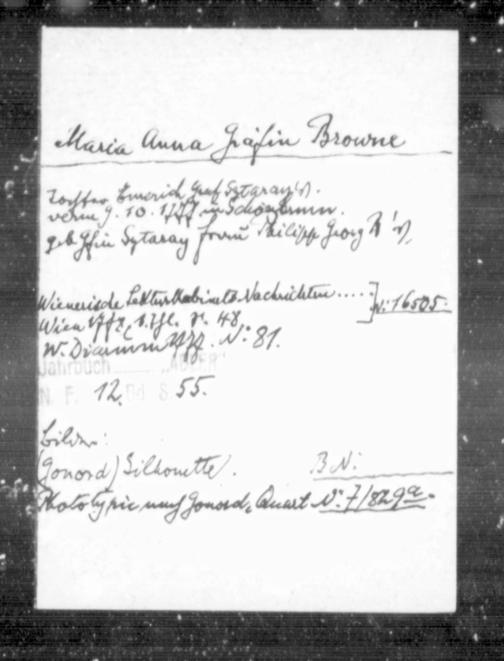 Maria Anna Gräfin Browne
Tochter Emerich Graf Sztaray's.
verm 9. 10. 1777 in Schönbrunn.
geb Gfin Sztaray Philipp Georg B's,
Wienerische Lekturkabinets-Nachrichten ..... ] N: 16505.
Wien 1777, S. 48
W. Diarium 1777. No: 81.
Jahrbuch „ADLER"
N. F. 12. Bd S. 55.
Bilder:
(Gonord) Silhouette. B.N:
Phototypie nach Gonord, Quart N: 7/829a.